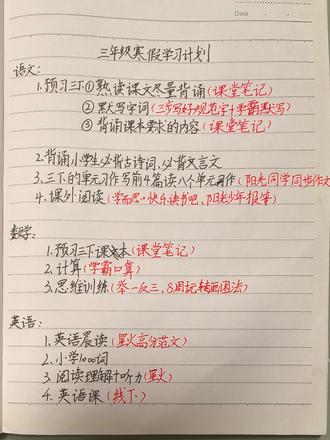 Date
三年级寒假学习计划
语文:
1.预习三下①熟读课文尽量背诵(课堂笔记)
②默写字词(三步写好规范字+学霸默写)
③背诵课本要求的内容(课堂笔记)
2.背诵小学生必背古诗词、必背文言文
3.三下的单元习作写前4篇读八个单元习作(阳光同学同步作文
4.课外阅读(学而思·快乐读书吧、阳光少年报等)
数学:
1.预习三下课本(课堂笔记)
2.计算(学霸口算)
3.思维训练(举一反三、8周玩转画图法)
英语:
1.英语晨读(星火高分范文)
2.小学1000词
3.阅读理解+听力(星火)
4.英语课(线下)